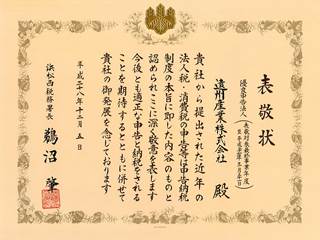 表敬状
優良申告法人
遠州産業株式会社 殿
貴社から提出された近年の
法人税・消費税の申告等は申告納税
制度の本旨に即した内容のものと
認められここに深く敬意を表します
今後とも適正な申告と納税をされる
ことを期待するとともに併せて
貴社の御発展を念じております
平成二十八年十二月五日
浜松西税務署長 鵜沼肇